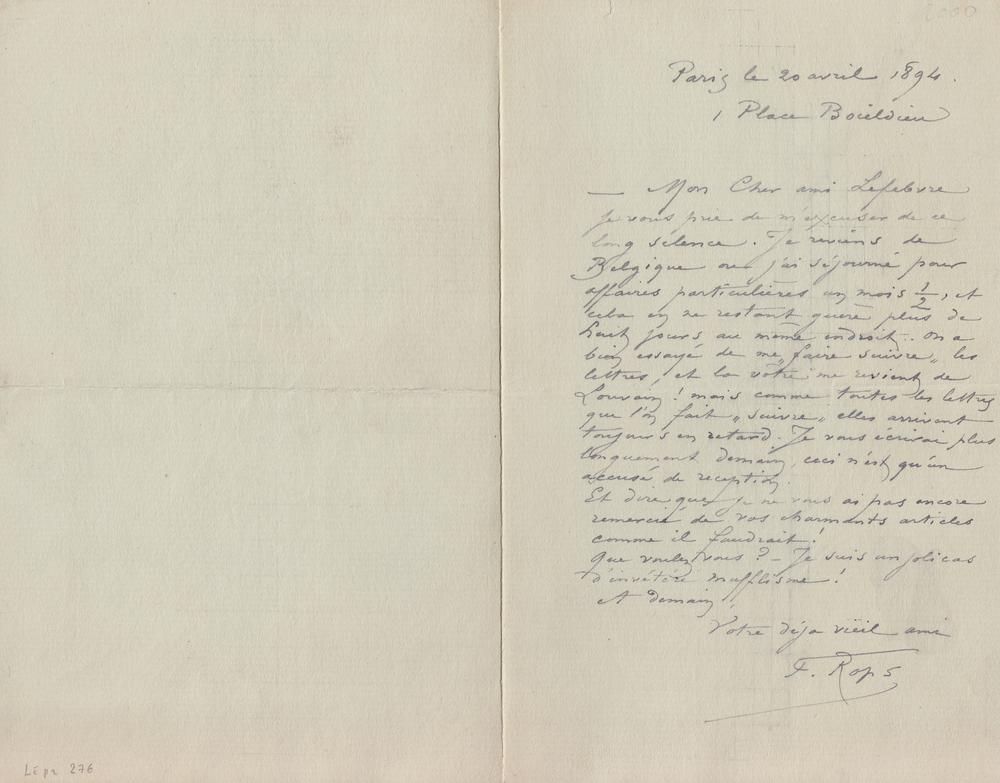 2000
Paris le 20 avril 1894.
1 Place Boieldieu
— Mon Cher ami Lefebvre
je vous prie de m'excuser de ce
long silence. Je reviens de
Belgique ou j'ai séjourné pour
affaires particulières un mois ½, et
cela en ne restant guère plus de
huit jours au même endroit. On a
bien essayé de me „faire suivre„ les
lettres, et la vôtre me revient de
Louvain ! mais comme toutes les lettres
que l'on fait „suivre„ elles arrivent
toujours en retard. Je vous écrirai plus
longuement demain, ceci n'est qu'un
accusé de reception.
Et dire que je ne vous ai pas encore
remercié de vos charmants articles
comme il faudrait !
Que voulez vous ? – Je suis un joli cas
d'invétéré mufflisme !
A demain,
Votre déja vieil ami
F. Rops
LEpr 276